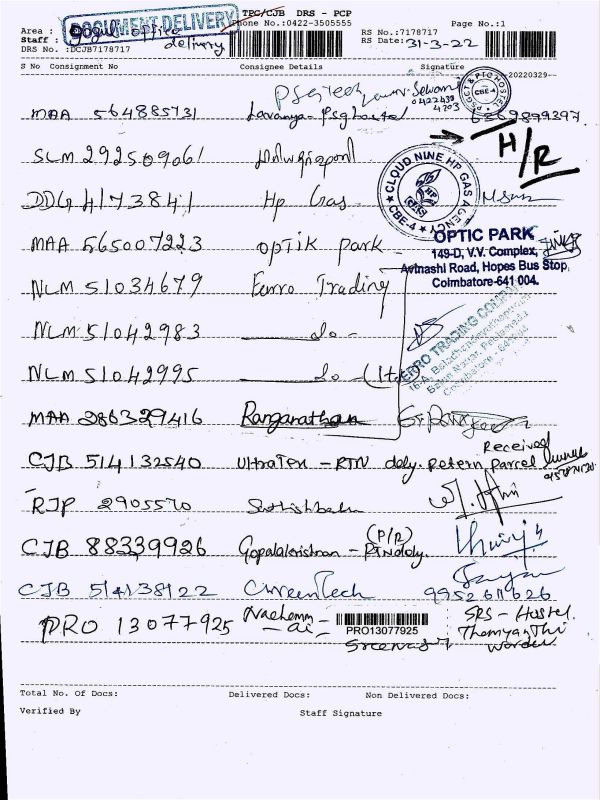 DOCUMENT DELIVERY
TPC/CJB DRS - PCP
Area : Gogul office
Phone No.:0422-3505555
Page No.:1
Staff : delivery
RS No.:7178717
DRS No. :DCJB7178717
RS Date: 31-3-22
S No Consignment No Consignee Details Signature
20220329--
PSG Tech
0422430
4203
MAA 564885731 Lavanya - Psg hostel 6269899397
PTC HOSTEL
CBE-4
H/R
SLM 292509061
CLOUD NINE HP GAS AGENCY
CBE-4
DDG 4173841 Hp Gas
MAA 565007223 OPTIK park
OPTIC PARK
149-D, V.V. Complex,
Avinashi Road, Hopes Bus Stop,
Coimbatore-641 004.
NLM 51034679 Eurro Trading
EFRO TRADING COMPANY
NLM 51042983 — do -
NLM 51042995 — do -
MAA 286329416 Ranganathan
CJB 514132540 Ultratex - RTN dely. Retern parcel
Received
RJP 2905570 Sathishbabu
CJB 88339926 Gopalakrishnan - (P/R) RTN dely.
CJB 514138122 Greentech 9952611626
PRO 13077925
PRO13077925
SRS - Hostel
Warden
Total No. Of Docs: Delivered Docs: Non Delivered Docs:
Verified By Staff Signature